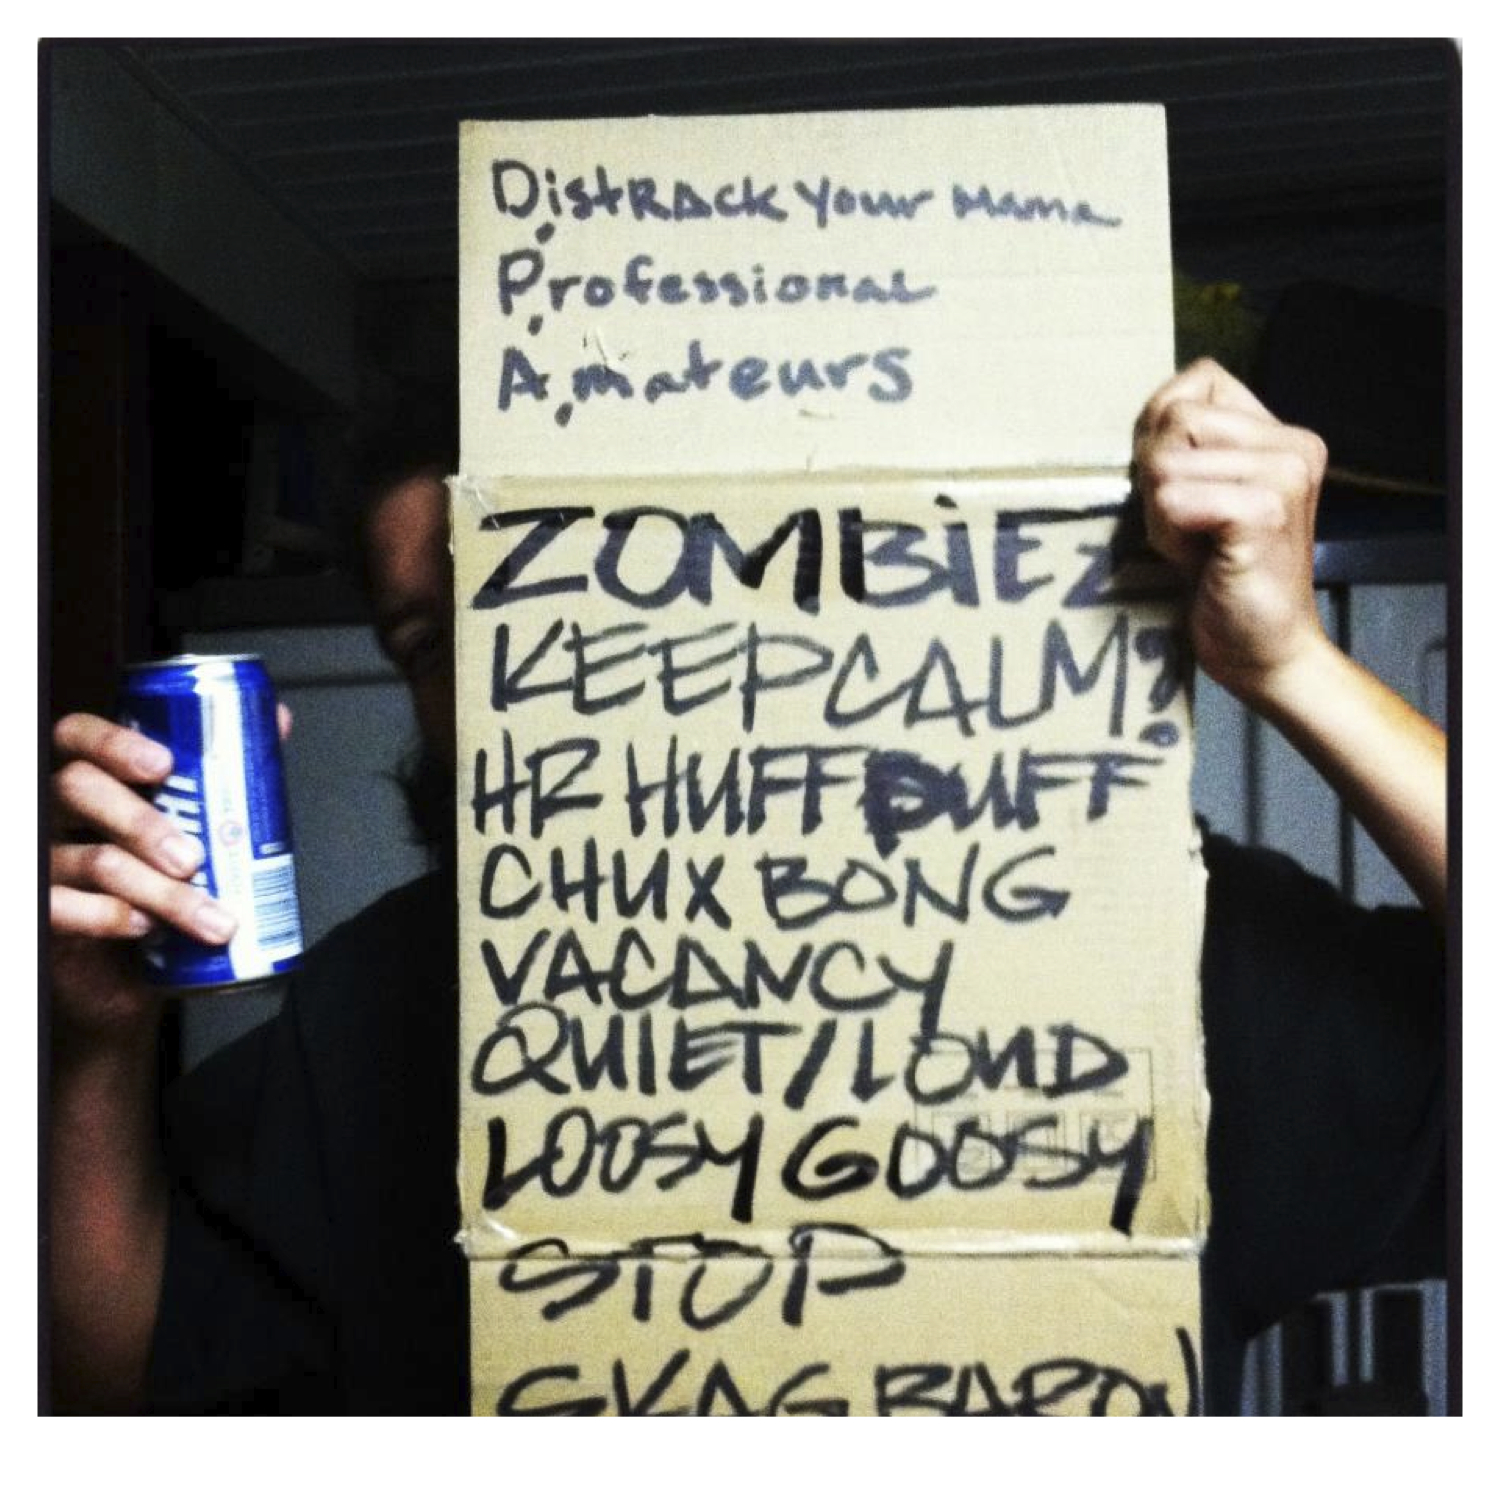 DistRAck Your Mama
Professional
Amateurs
ZOMBiEZ
KEEP CALM?
HR HUFFPUFF
CHUX BONG
VACANCY
QUIET/LOUD
LOOSY GOOSY
STOP
SKAG BARON